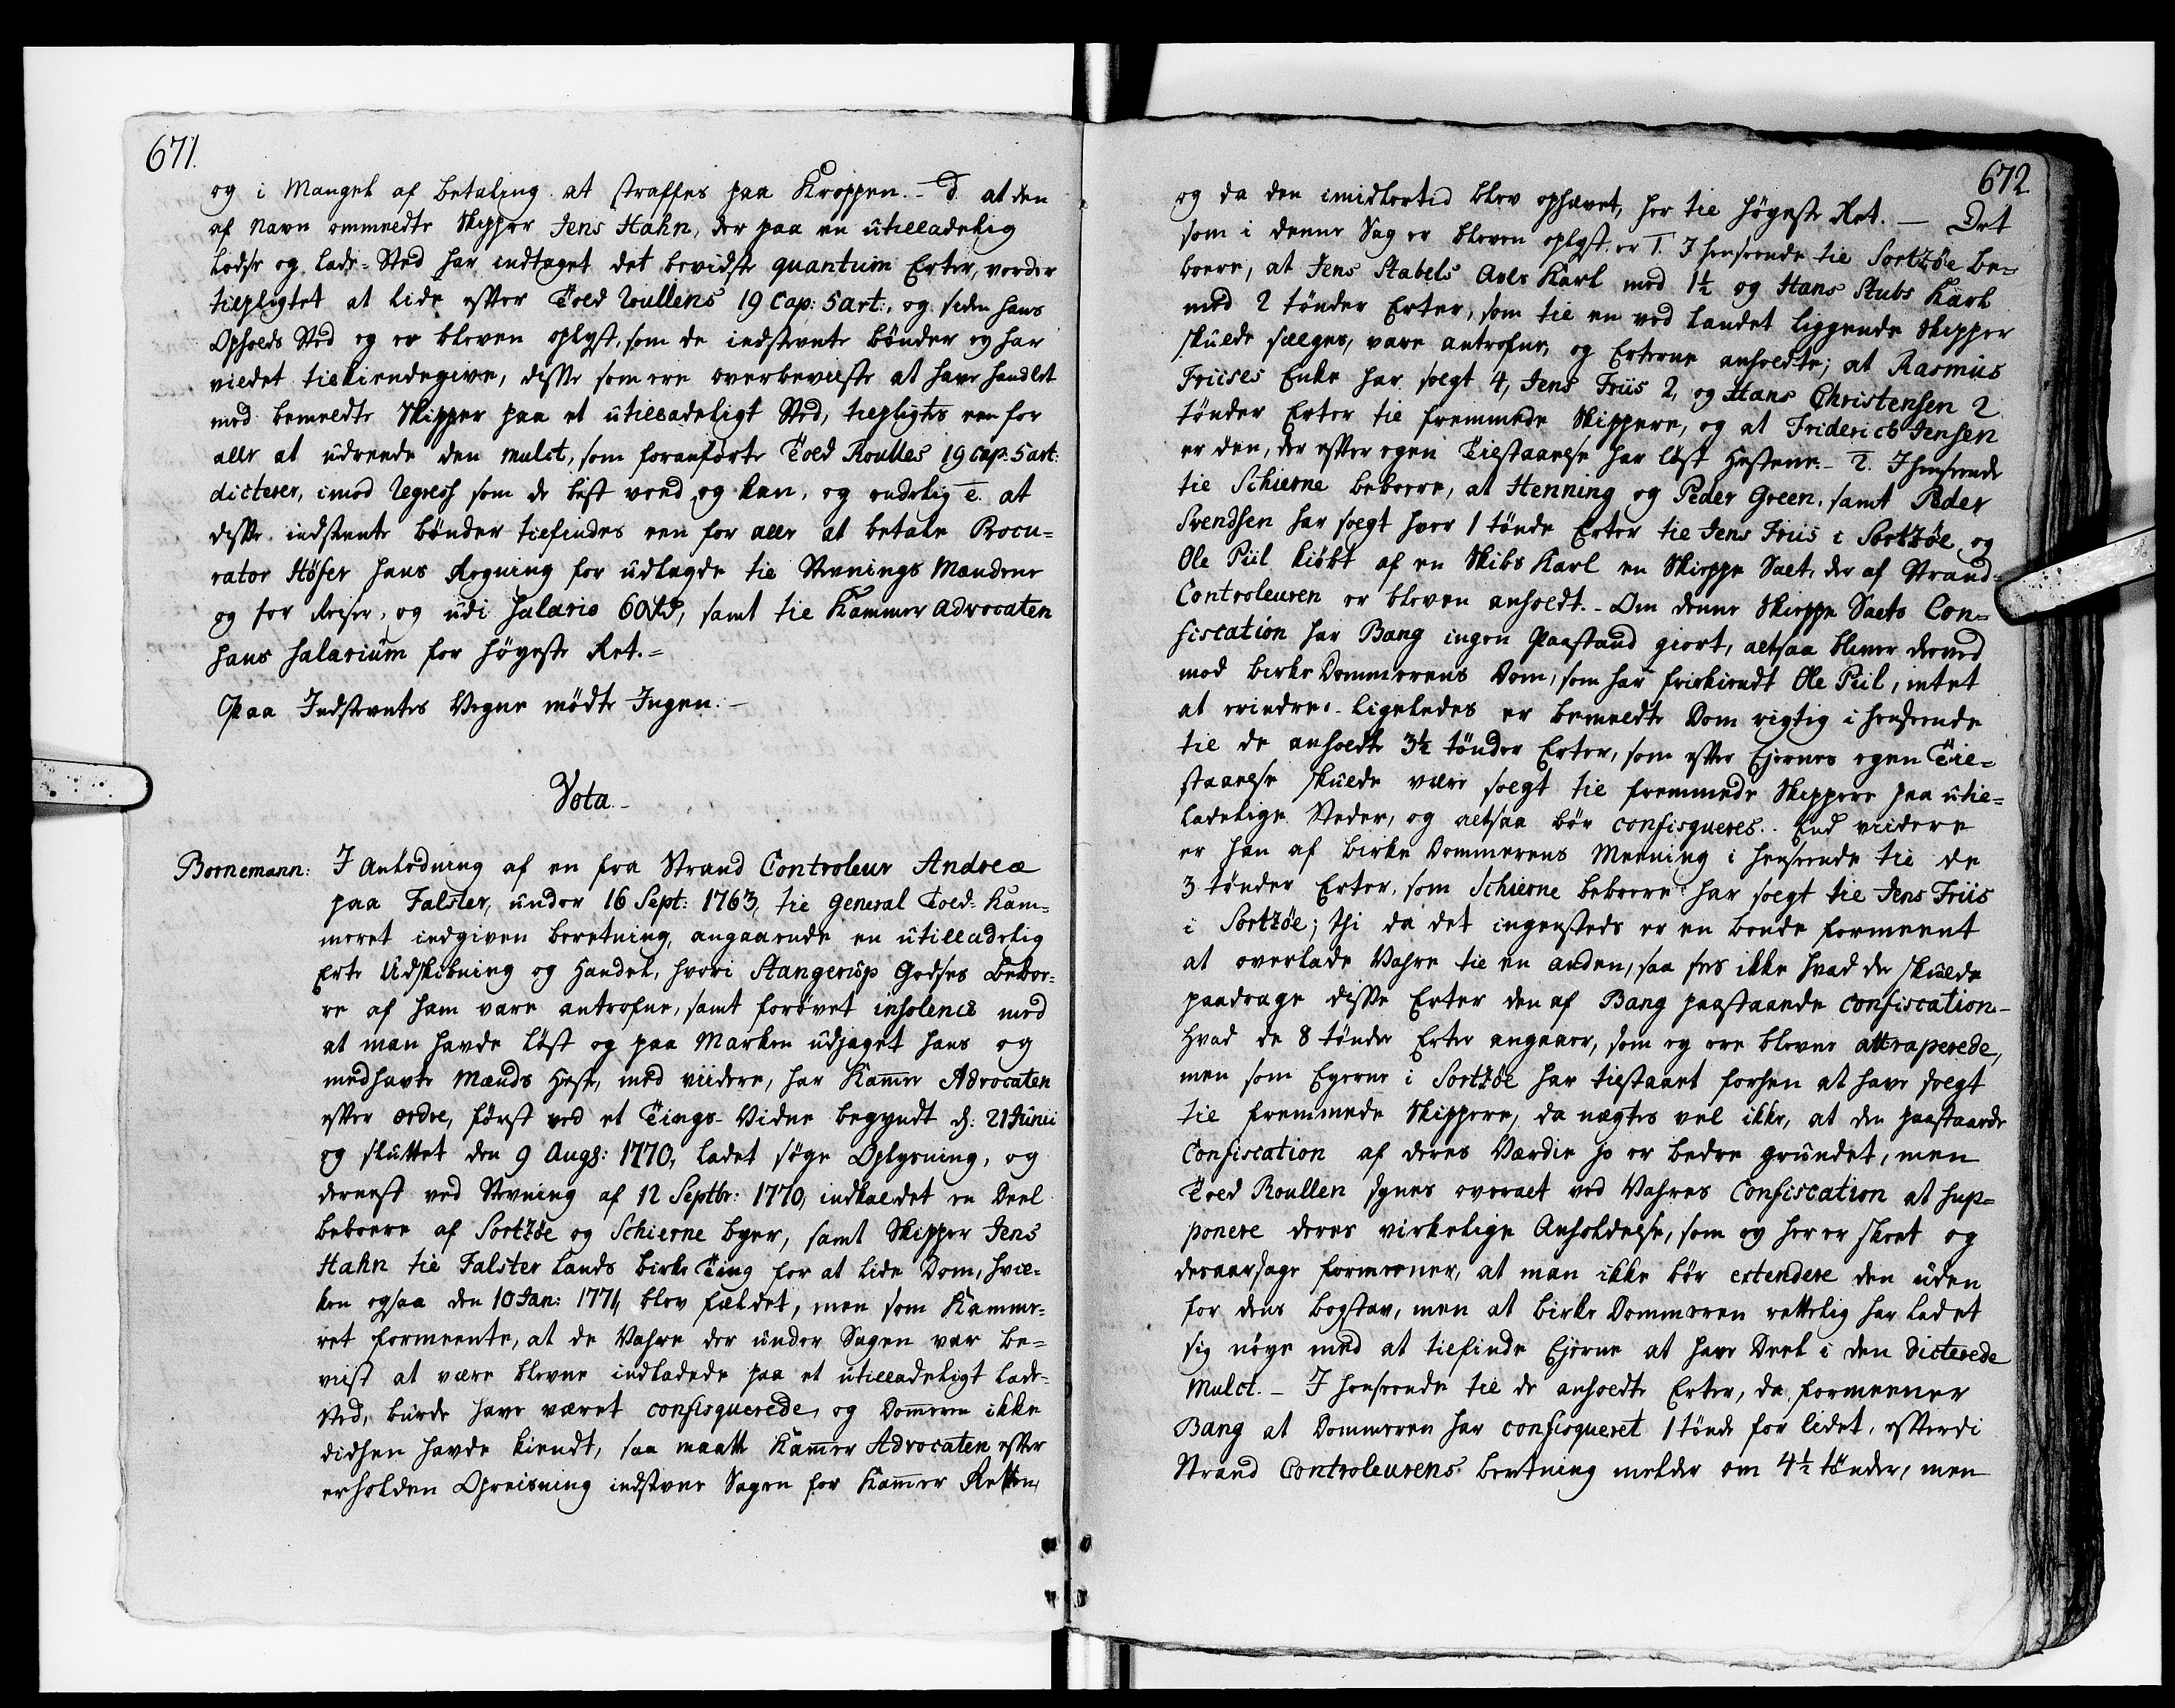 671.
og i Mangel af betaling at straffes paa Kroppen. - d. at den
af Navn ommeldte Skipper Jens Hahn, der paa en utilladelig
Losse og lade-Sted har indtaget det bevidste quantum Erter, vorder
tilpligtet at lide efter Told Rullens 19 Cap: 5 art:, og siden hans
Opholds Sted ey er bleven oplyst, som de indstevnte bønder ey har
villet tilkiendegive, disse som ere overbeviiste at have handlet
med bemeldte Skipper paa et utilladeligt Sted, tilpligtes een for
alle at udreede den mulct, som foranførte Told Roulles 19 Cap: 5 art:
dicterer, imod Regress som de best veed og kan, og endelig e. at
disse indstevnte bønder tilfindes een for alle at betale Procu-
rator Höfer hans Regning for udlagde til Stevnings Mændene
og for Reiser, og udi Salario 60 Rd, samt til Kammer Advocaten
hans Salarium for høyeste Ret. =
Paa Indstevntes Vegne mødte Ingen. -
Vota. -
Bornemann: I Anledning af en fra Strand Controleur Andreæ
paa Falster, under 16 Sept: 1763, til General Told-Kam-
meret indgiven beretning, angaaende en utilladelig
Erte Udskibning og Handel, hvori Stangerup Godses Beboe-
re af ham vare antrofne, samt forøvet insolence med
at man havde løst og paa Marken udjaget hans og
medhavte Mænds Heste, med viidere, har Kammer Advocaten
efter ordre, først ved et Tings-Vidne begyndt d: 21 Junii
og sluttet den 9 Augs: 1770, ladet søge Oplysning, og
dernest ved Stevning af 12 Septbr: 1770, indkaldet en Deel
beboere af Sortzöe og Schierne byer, samt Skipper Jens
Hahn til Falster Lands birke Ting for at lide Dom, hvil-
ken ogsaa den 10 Jan: 1771, blev fældet, men som Kamme-
ret formeente, at de Vahre der under Sagen var be-
viist at være blevne indladede paa et utilladeligt lade-
sted, burde have været confisquerede, og Dommeren ikke
didhen havde kiendt, saa maatte Kammer Advocaten efter
erholden Opreisning indstevne Sagen for Kammer Retten,
672
og da den imidlertid blev ophævet, her til høyeste Ret. - Det
som i denne Sag er bleven oplyst er 1. I henseende til Sortzöe be-
boere, at Jens Stabels Avls Karl med 1½ og Hans Stubs Karl
med 2 tønder Erter, som til en ved landet liggende Skipper
skulde sælges, vare antrofne, og Erterne anholdte; at Rasmus
Friises Enke har solgt 4, Jens Friis 2, og Hans Christensen 2
tønder Erter til fremmede Skippere, og at Friderich Jensen
er den, der efter egen Tilstaaelse har løst Hestene. - 2. I henseende
til Schierne beboere, at Henning og Peder Green, samt Peder
Svendsen har solgt hver 1 tønde Erter til Jens Friis i Sortzöe og
Ole Piil kiøbt af en Skibs Karl en Skieppe Salt, der af Strand-
Controleuren er bleven anholdt. - Om denne Skieppe Salts Con-
fiscation har Bang ingen Paastand giort, altsaa bliver derved
mod birke Dommerens Dom, som har frikiendt Ole Piil, intet
at erindre. - Ligeledes er bemeldte Dom rigtig i henseende
til de anholdte 3½ tønder Erter, som efter Ejernes egen Til-
staaelse skulde være solgt til fremmede Skippere paa util-
ladelige Steder, og altsaa bør confisqueres. - End viidere
er han af birke Dommerens Meening i henseende til de
3 tønder Erter, som Schierne beboere har solgt til Jens Friis
i Sortzöe; thi da det ingensteds er en bonde formeent
at overlade Vahre til en anden, saa sees ikke hvad der skulde
paadrage disse Erter den af Bang paastaaende Confiscation. -
Hvad de 8 tønder Erter angaaer, som ey ere blevne attraperede,
men som Eyerne i Sortzöe har tilstaaet forhen at have solgt
til fremmede Skippere, da nægtes vel ikke, at den paastaaede
Confiscation af deres Værdie jo er bedre grundet, men
Told Roullen synes overalt ved Vahres Confiscation at sup-
ponere deres virkelige Anholdelse, som ey her er skeet og
desaarsage formeener, at man ikke bør extendere den uden
for dens bogstav, men at birke Dommeren rettelig har ladet
sig nøye med at tilfinde Ejerne at have Deel i den dicterede
Mulct. - I henseende til de anholdte Erter, da formeener
Bang at Dommeren har confisqueret 1 tønde for lidet, efterdi
Strand Controleurens beretning melder om 4½ tønder, men